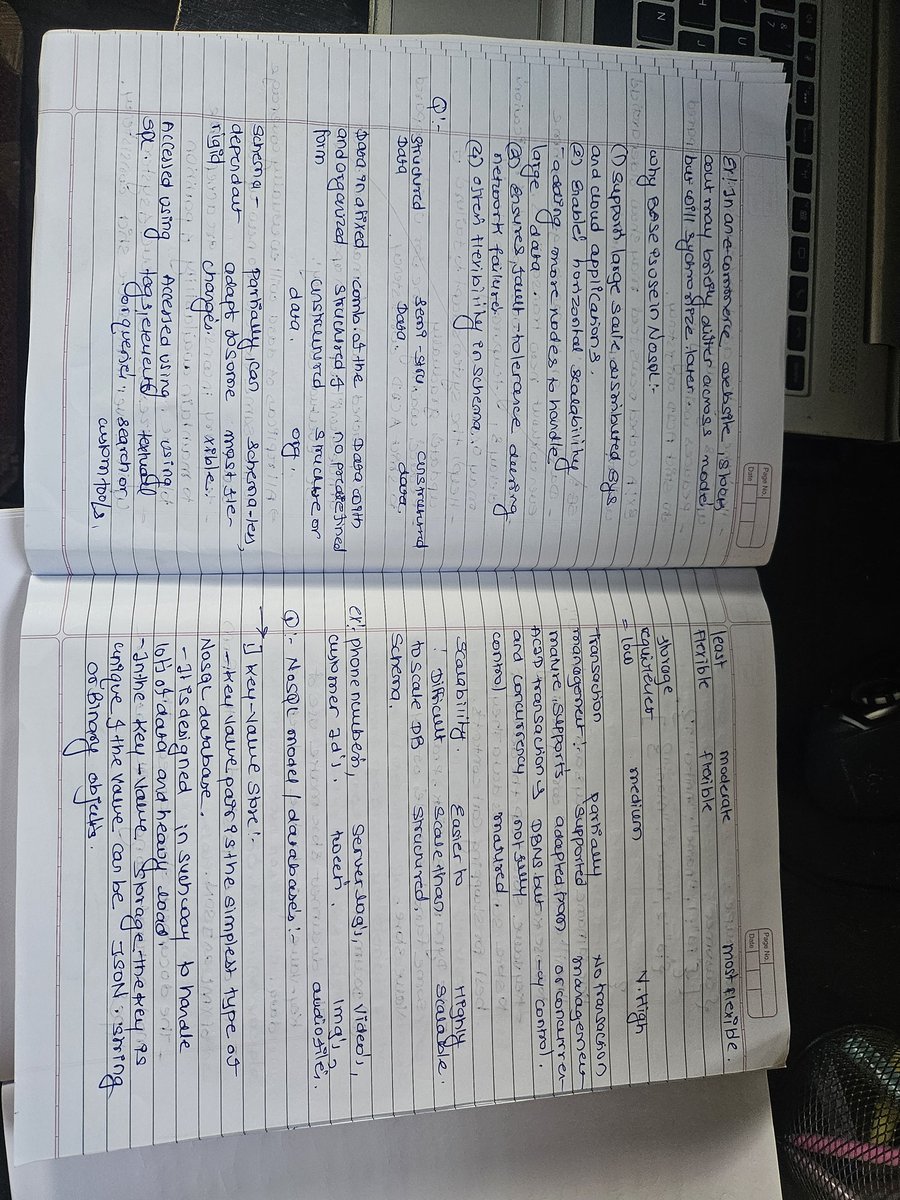 Page No.
Date
Ex:- In an e-commerce website, stock
out may briefly differ across model
but will sychronize later.
why BASE is use in Nosql:-
(1) Support large scale distributed sys
and cloud applications.
(2) Enable horizontal scalability
adding more nodes to handle
large data.
(3) Ensures fault-tolerance deering
network failures
(4) offen flexibility in schema.
Q:-
structured semi-stru unstructured
Data Data. data.
Data in a fixed comb. of the Data with
and organized structured & no predefined
form unstructured structure or
data. org.
schema- partially can schema-less,
dependant adapt to some most fle-
rigid changes xible.
Accessed using Accessed using using
sql. tags, elements textual
or queries. search or
custom tools.
Page No.
Date
least moderate most flexible.
flexible flexible
storage
requirement
= low medium V. High
transaction partially No transaction
management:- supported managemen-
mature, supports adapted from or concurren-
ACID transaction & DBMS but -cy control.
and concurrency not fully
control matured.
Scalability. Easier to Highly
Difficult scale than scalable.
to scale DB structured.
Schema.
ex:- phone number's, Server log's, Video's,
customer Id's. tweet's. Img's,
audiofiles.
Q:- NoSQL model / database's:-
→ 1] Key-Value Store:-
- Key value pair is the simplest type of
Nosql database.
- It is designed in such way to handle
lot of data and heavy load.
- In the key-value storage the key is
unique & the value can be JSON, string
or Binary objects.
N
J
U
7
&
8